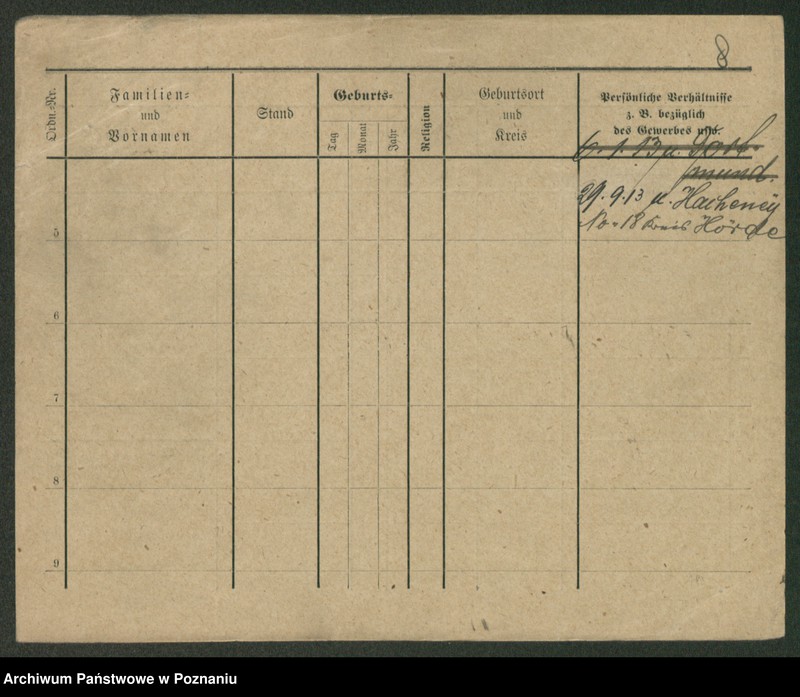 8
Ordn.-Nr.
Familien-
und
Vornamen
Stand
Geburts-
Tag
Monat
Jahr
Religion
Geburtsort
und
Kreis
Persönliche Verhältnisse
z. B. bezüglich
des Gewerbes usw.
6. 1. 13 u. Dort-
mund.
29. 9. 13 u. Hacheney
No. 18 Kreis Hörde
5
6
7
8
9
Archiwum Państwowe w Poznaniu